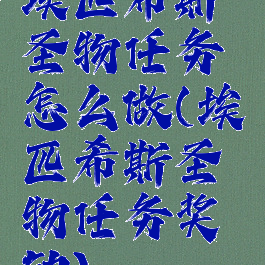 埃匹希斯
圣物任务
怎么做(埃
匹希斯圣
物任务奖